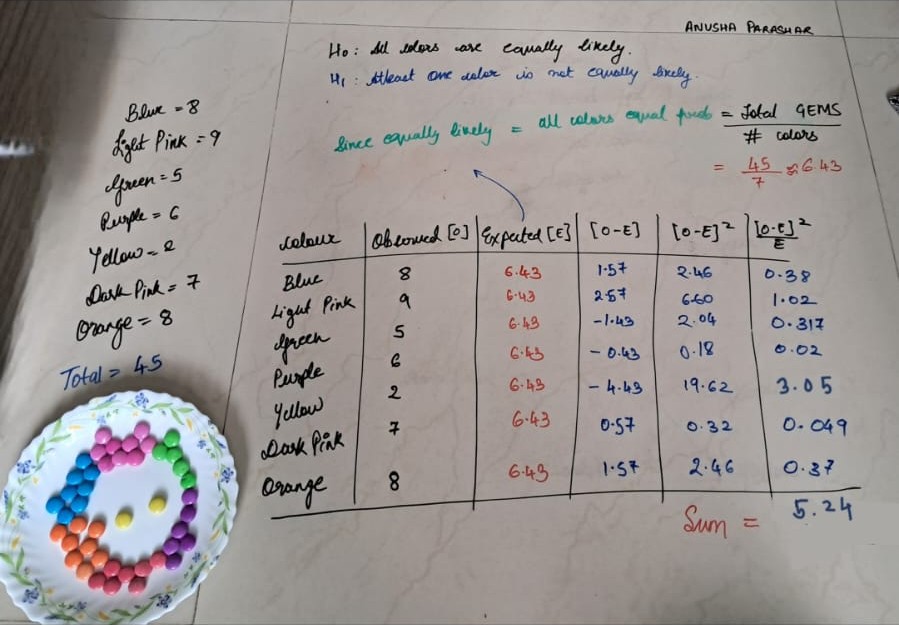 ANUSHA PARASHAR
H0 : All colors are equally likely.
H1 : Atleast one color is not equally likely.
Blue = 8
Light Pink = 9
Green = 5
Purple = 6
Yellow = 2
Dark Pink = 7
Orange = 8
Total = 45
Since equally likely = all colors equal prob = Total GEMS / # colors
= 45/7 ≈ 6.43
colour Observed [O] Expected [E] [O-E] [O-E]² [O-E]²/E
Blue 8 6.43 1.57 2.46 0.38
Light Pink 9 6.43 2.57 6.60 1.02
Green 5 6.43 -1.43 2.04 0.317
Purple 6 6.43 -0.43 0.18 0.02
Yellow 2 6.43 -4.43 19.62 3.05
Dark Pink 7 6.43 0.57 0.32 0.049
Orange 8 6.43 1.57 2.46 0.37
Sum = 5.24